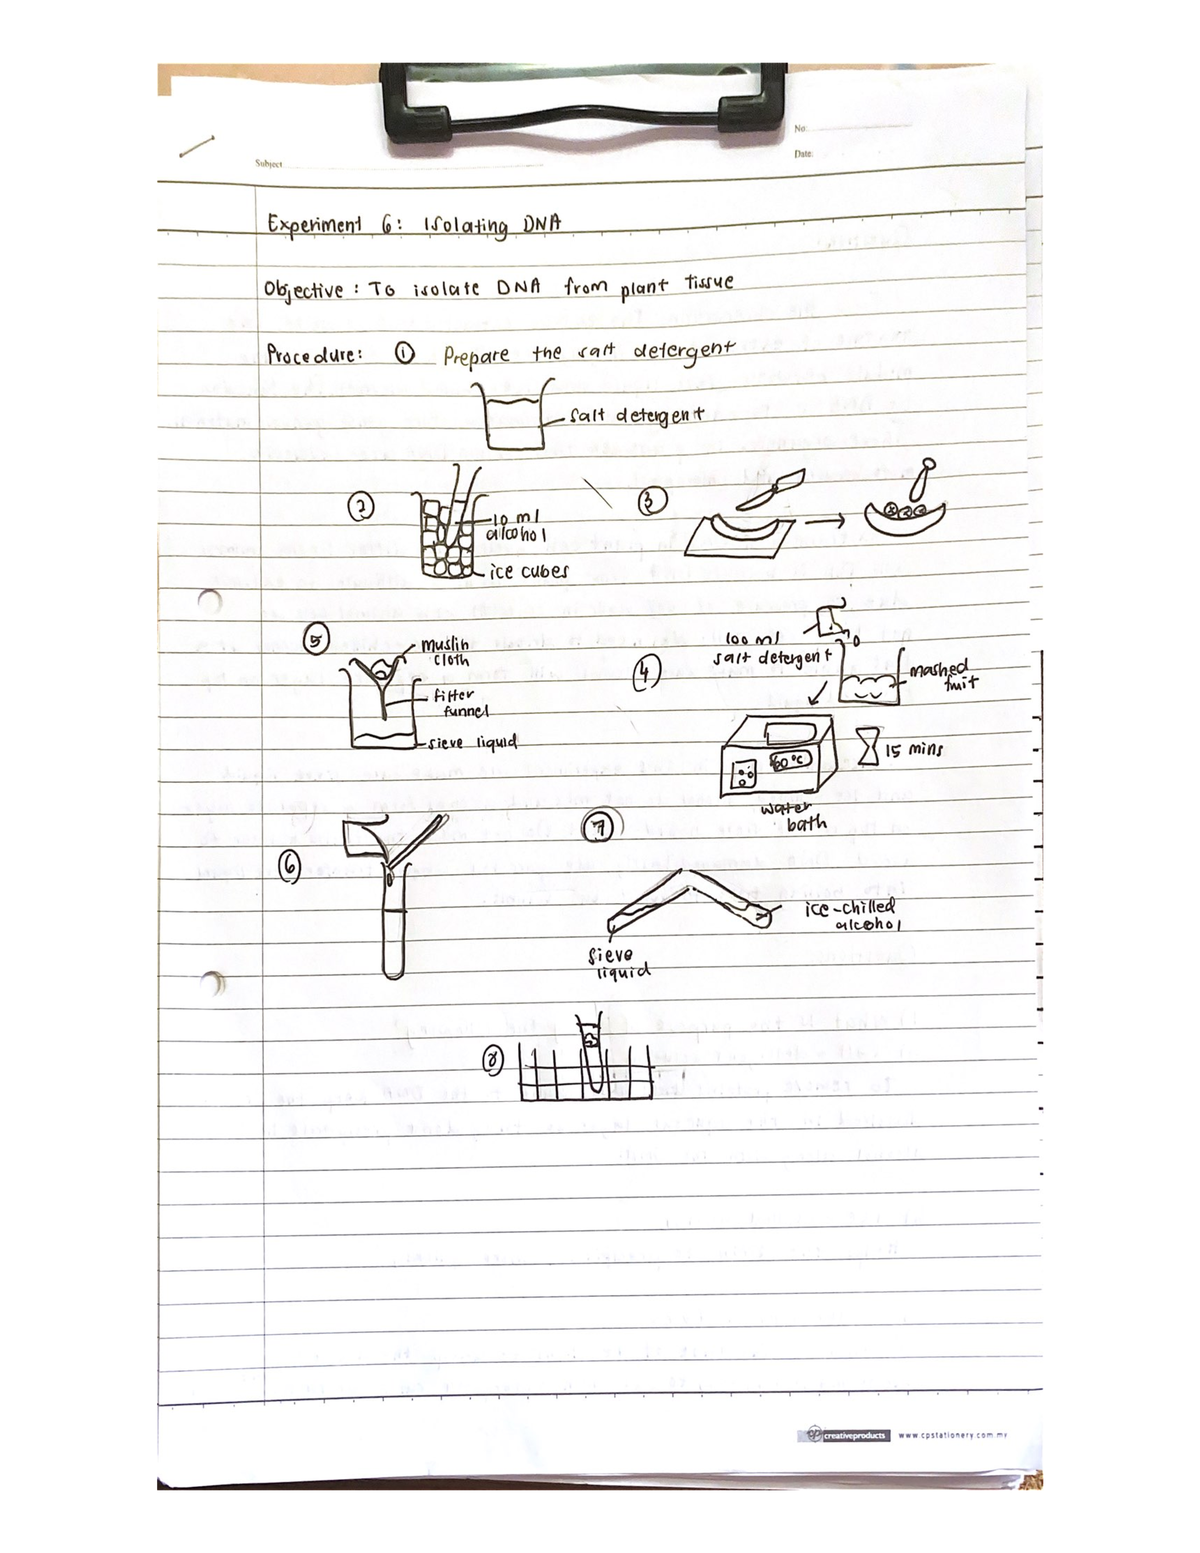 No:
Date:
Subject
Experiment 6: Isolating DNA
Objective : To isolate DNA from plant tissue
Procedure: ① Prepare the salt detergent
salt detergent
②
10 ml
alcohol
ice cubes
③
⑤
muslin
cloth
filter
funnel
sieve liquid
④
100 ml
salt detergent
mashed
fruit
60°C
15 mins
water
bath
⑥
⑦
sieve
liquid
ice-chilled
alcohol
⑧
cp creativeproducts www.cpstationery.com.my